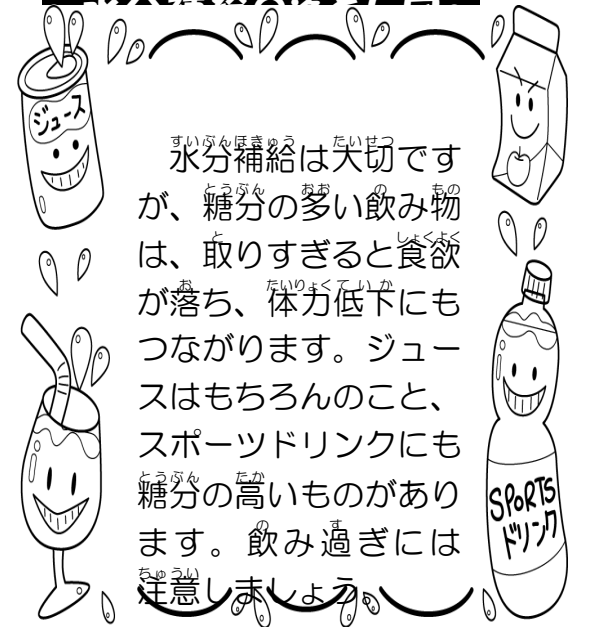 ジュース
水分補給は大切です
が、糖分の多い飲み物
は、取りすぎると食欲
が落ち、体力低下にも
つながります。ジュー
スはもちろんのこと、
スポーツドリンクにも
糖分の高いものがあり
ます。飲み過ぎには
注意しましょう。
SPORTS
ドリンク